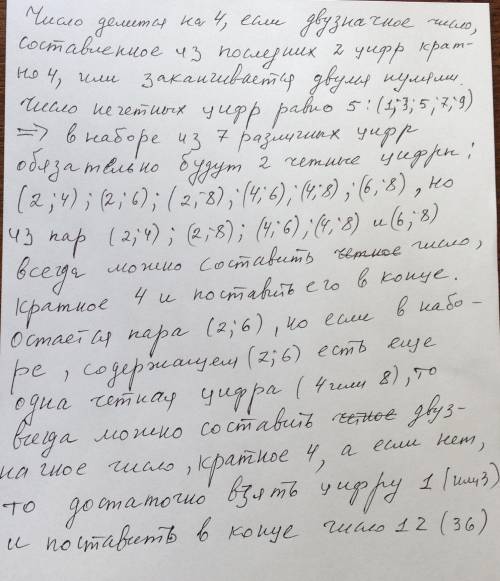 Число делится на 4, если двузначное число,
составленное из последних 2 цифр крат-
но 4, или заканчивается двумя нулями.
Число нечетных цифр равно 5: (1;3;5;7;9)
=> в наборе из 7 различных цифр
обязательно будут 2 четные цифры:
(2;4); (2;6); (2;8); (4;6); (4;8); (6;8), но
из пар (2;4); (2;8); (4;6); (4;8) и (6;8)
всегда можно составить четное число,
кратное 4 и поставить его в конце.
Остается пара (2;6), но если в набо-
ре, содержащем (2;6) есть еще
одна четная цифра (4 или 8), то
всегда можно составить четное двуз-
начное число, кратное 4, а если нет,
то достаточно взять цифру 1 (или 3)
и поставить в конце число 12 (36)